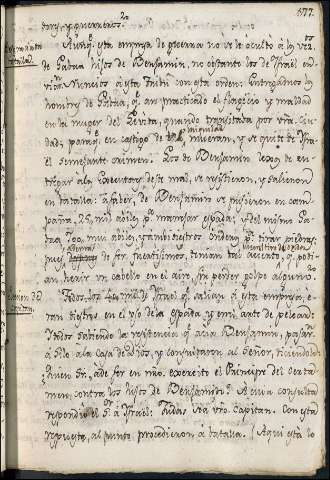 677.
tes, y guerreros.
Aunq.e esta empresa de guerra no se le oculto à los vez.os
de Gabaa hijos de Benjamin, no obstante los de Israel en-
vian Nuncios à esta Tribu con esta orden: Entregadnos los
hombres de Gabaa, q. an practicado el flagicio y maldad
en la muger del Levita, quando transitaba por v̄ra. Ciu-
dad, para q. en castigo de tal iniquidad mueran, y se quite de Isra-
el semejante crimen. Los de Benjamin lexos de en-
tregar à los executores de este mal, se resistieron, y salieron
en batalla: à saber, de Benjamin se pusieron en cam-
paña, 25, mil aviles p.a manejar espada; y del mismo Ga-
baa 700, mui aviles, y ambidiestros
p.a tirar piedras,
pues de ser
tenian tal acierto, q. podi-
an herir un cabello en el aire, sin perder golpe alguno.
Todos los 40, mil de Israel q. salian à esta empresa, e-
ran diestros en el uso de la espada, y en el arte de pelear.
Y todos sabiendo la resistencia q. acia Benjamin, pasar.n
à Silo a la Casa de Dios, y consultaron al Señor, diciendole:
Quien S.r, à de ser en n̄ro. exercito el Principe del certa-
men contra los hijos de Benjamin? A cuia consulta
respondio el S.r à Israel: Judas sea v̄ro Capitan. Con esta
respuesta, al punto procedieron à batalla. (Aqui esta lo